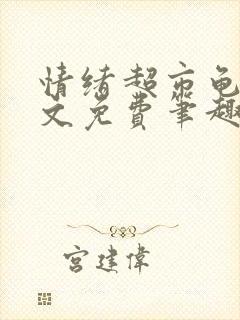 情绪超市龟
文免费笔趣
宫建伟